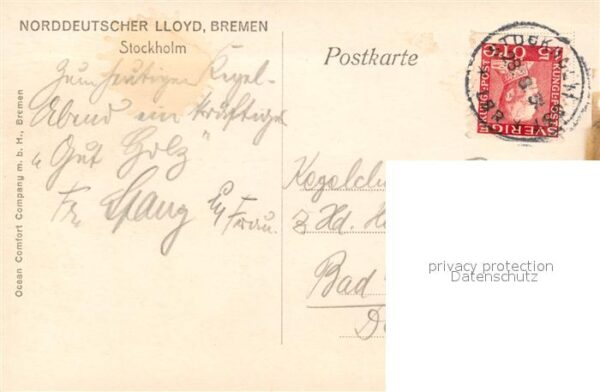 NORDDEUTSCHER LLOYD, BREMEN
Stockholm
Postkarte
Zum heutigen Kegel-
Abend ein kräftiges
"Gut Holz"
Fr. Stanz & Frau.
Kegelclu
z. Hd. H
Bad
Ocean Comfort Company m. b. H., Bremen
STOCKHOLM
KUNGL. POST
SVERIGE
15
privacy protection
Datenschutz